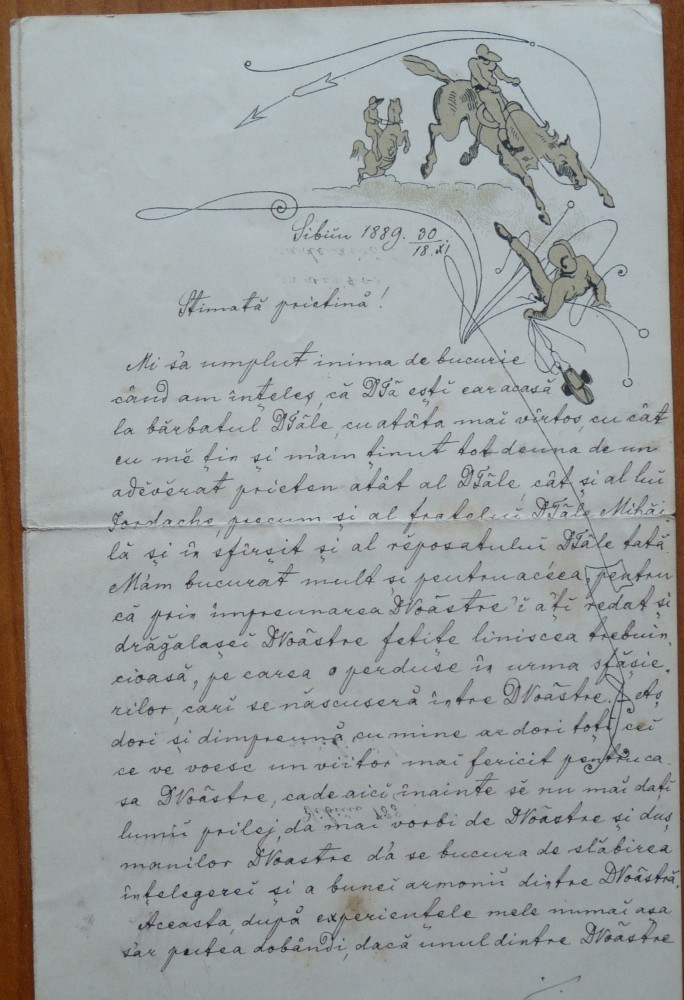 Sibiiu 1889. 30/18. XI.
Stimată prietină!
Mi s'a umplut inima de bucurie
când am înțeles, că DTă ești earacasă
la bărbatul DTăle, cu atâta mai vîrtos, cu cât
eu mĕ țin și m'am ținut tot deuna de un
adĕvĕrat prieten atât al DTăle, cât și al lui
Iordache, precum și al fratelui DTăle Mihăi-
lă și în sfîrșit și al rĕposatului DTăle tată
M'am bucurat mult și pentru aceea, pentru
că prin împreunarea DVoăstre 'i ați redat și
drăgălașei DVoăstre fetițe liniscea trebuin-
cioasă, pe carea o perduse în urma sfășie-
rilor, cari se născuseră între DVoăstre. Aș
dori și dimpreună cu mine ar dori toți cei
ce ve voesc un viitor mai fericit pentru ca-
sa DVoăstre, ca de aici înainte sĕ nu mai dați
lumii prilej, d'a mai vorbi de DVoăstre și duș
manilor DVoastre d'a se bucura de slăbirea
înțelegerei și a bunei armonii dintre DVoăstră.
Aceasta, după experiențele mele numai așa
s'ar putea dobândi, dacă unul dintre DVoăstre